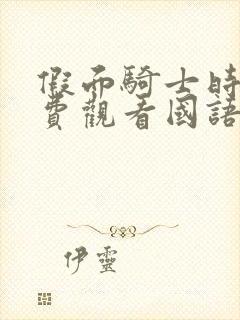 假面騎士時
費觀看國語
伊靈